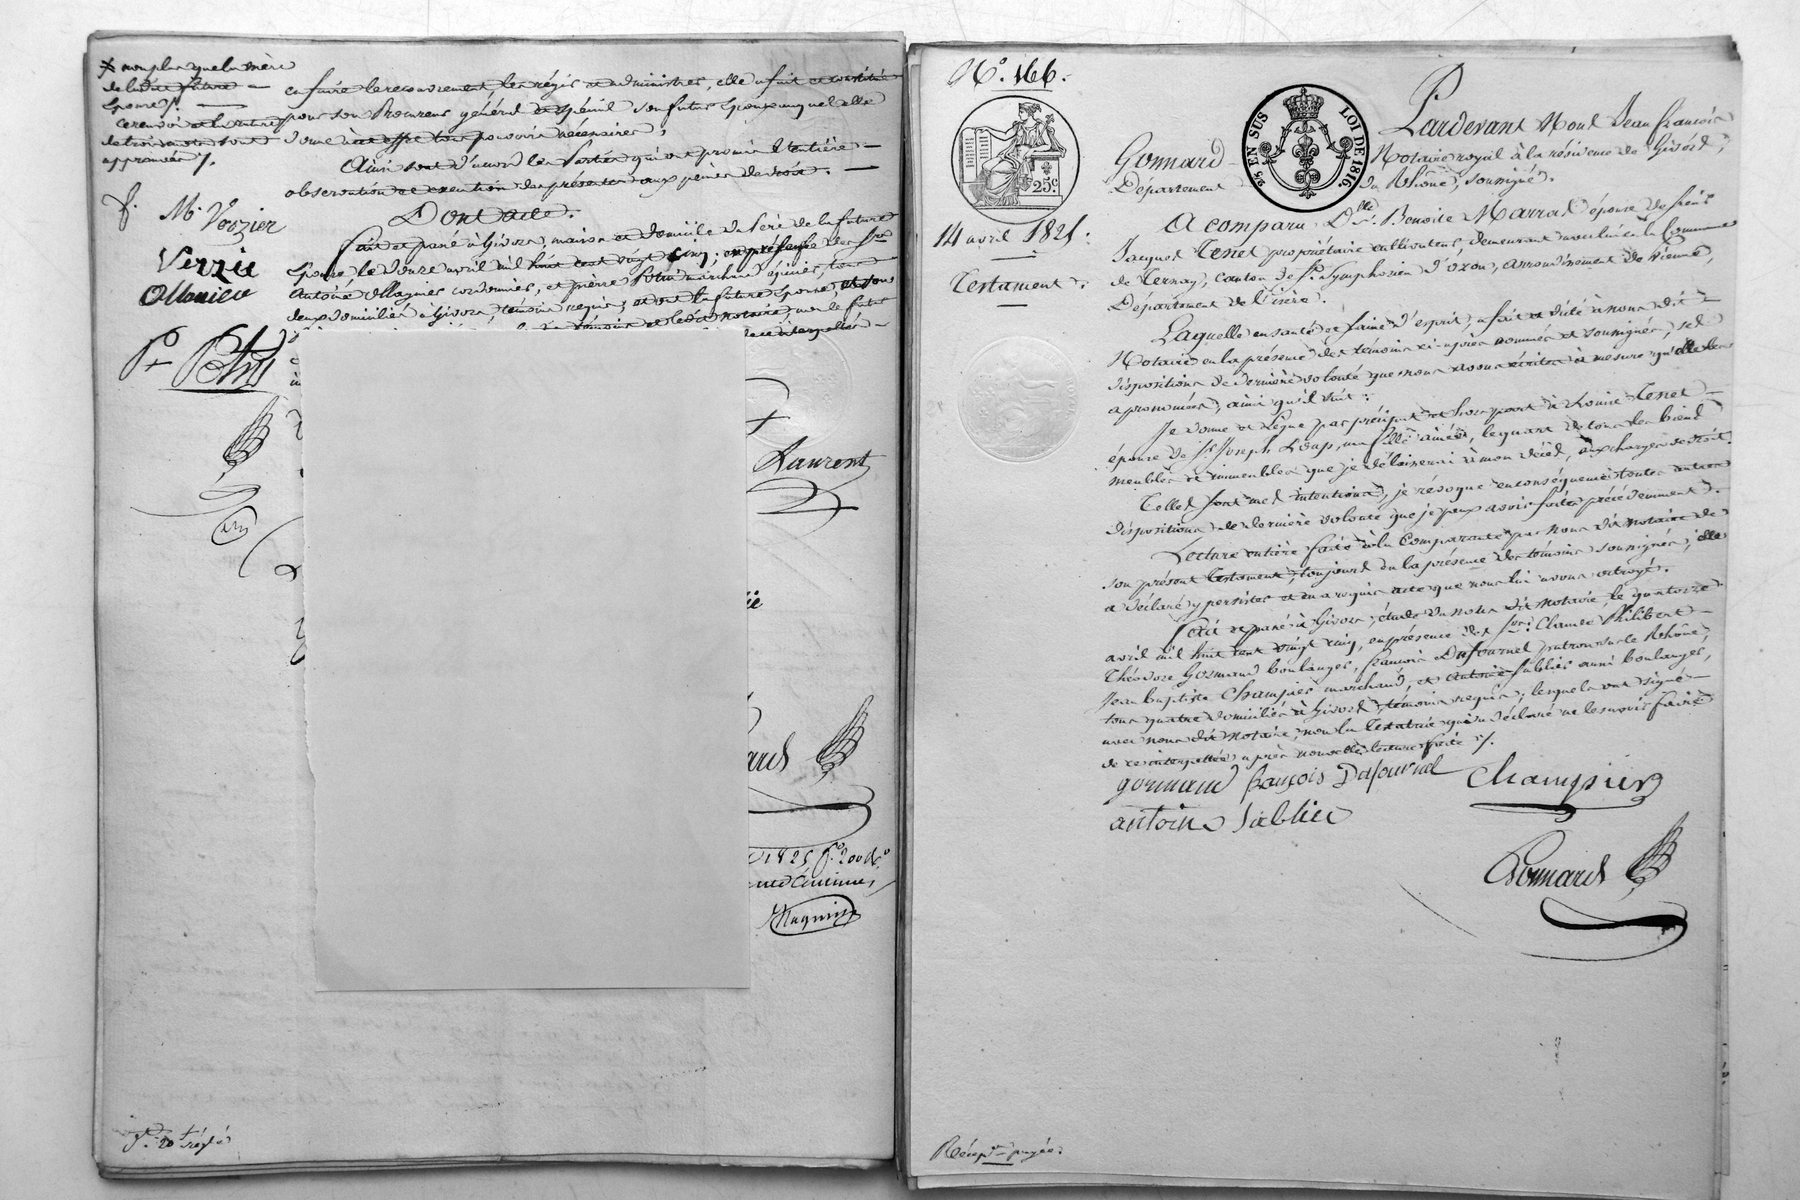 non plus que la mère
de ladite future
épouse /.
ce renvoi et la rature
de trois mots sont
approuvés /.
en faire le recouvrement, les régir et administrer, elle a fait et constitué
pour son Procureur général et spécial son futur époux auquel elle
donne à cet effet tous pouvoirs nécessaires ;
Ainsi sont d'accord les Parties qui ont promis l'entière
observation et exécution des présentes aux peines de droit.
Dont acte.
Fait et passé à Givors, maison et domicile du Père de la future
épouse, le douze avril mil huit cent vingt cinq ; en présence des Srs
Antoine Ollagnier cordonnier, et pierre Potin marchand épicier, tous
deux domiciliés à Givors, témoins requis ; et ont la future épouse,
témoins et ledit notaire, non le futur
de ce interpellés
M. Verzier
Verzie
Ollanier
Laurent
1825 f.° 200
centimes
N.° 166.
25c
14 avril 1825 :
Testament :
25 EN SUS
LOI DE 1816.
Pardevant Mont Jean françois
Gonnard Notaire royal à la résidence de Givors,
Departement du Rhône, soussigné.
A comparu D.lle Benoite Marrel épouse du sieur
Jacques Tenet propriétaire cultivateur, demeurant avec lui en la Commune
de Ternay, canton de St. Symphorien d'ozon, arrondissement de Vienne,
Département de l'isère.
Laquelle en santé et saine d'esprit, a fait et dicté à nous dit
Notaire en la présence des témoins ci-après nommés et soussignés, ses
dispositions de dernière volonté que nous avons écrites à mesure qu'elle les
a prononcées, ainsi qu'il suit :
Je donne et Lègue par préciput et hors part à Louise Tenet
épouse de Sr Joseph Loup, ma fille ainée, le quart de tous les biens
meubles et immeubles que je délaisserai à mon décès, aux charges de droit.
Telles sont mes intentions, je révoque en conséquence toutes autres
dispositions de dernière volonté que je peux avoir faites précédemment.
Lecture entière faite à la Comparante par nous dit notaire de
son présent testament, toujours en la présence des témoins soussignés, elle
a déclaré y persister et en a requis acte que nous lui avons octroyé.
Fait et passé à Givors, étude du notre dit Notaire, le quatorze
avril mil huit cent vingt cinq, en présence des srs. Claude Philibert
Théodore Gormand boulanger, françois Dufournel patron sur le Rhône,
Jean Baptiste Champier marchand, et Antoine Sablier aussi boulanger,
tous quatre domiciliés à Givors, témoins requis ; lesquels ont signé
avec nous dit Notaire, non la testatrice qui a déclaré ne le savoir faire
de ce interpellée après nouvelle lecture faite /.
gormand françois Dufournel Champier
antoine Sablier
Gonnard